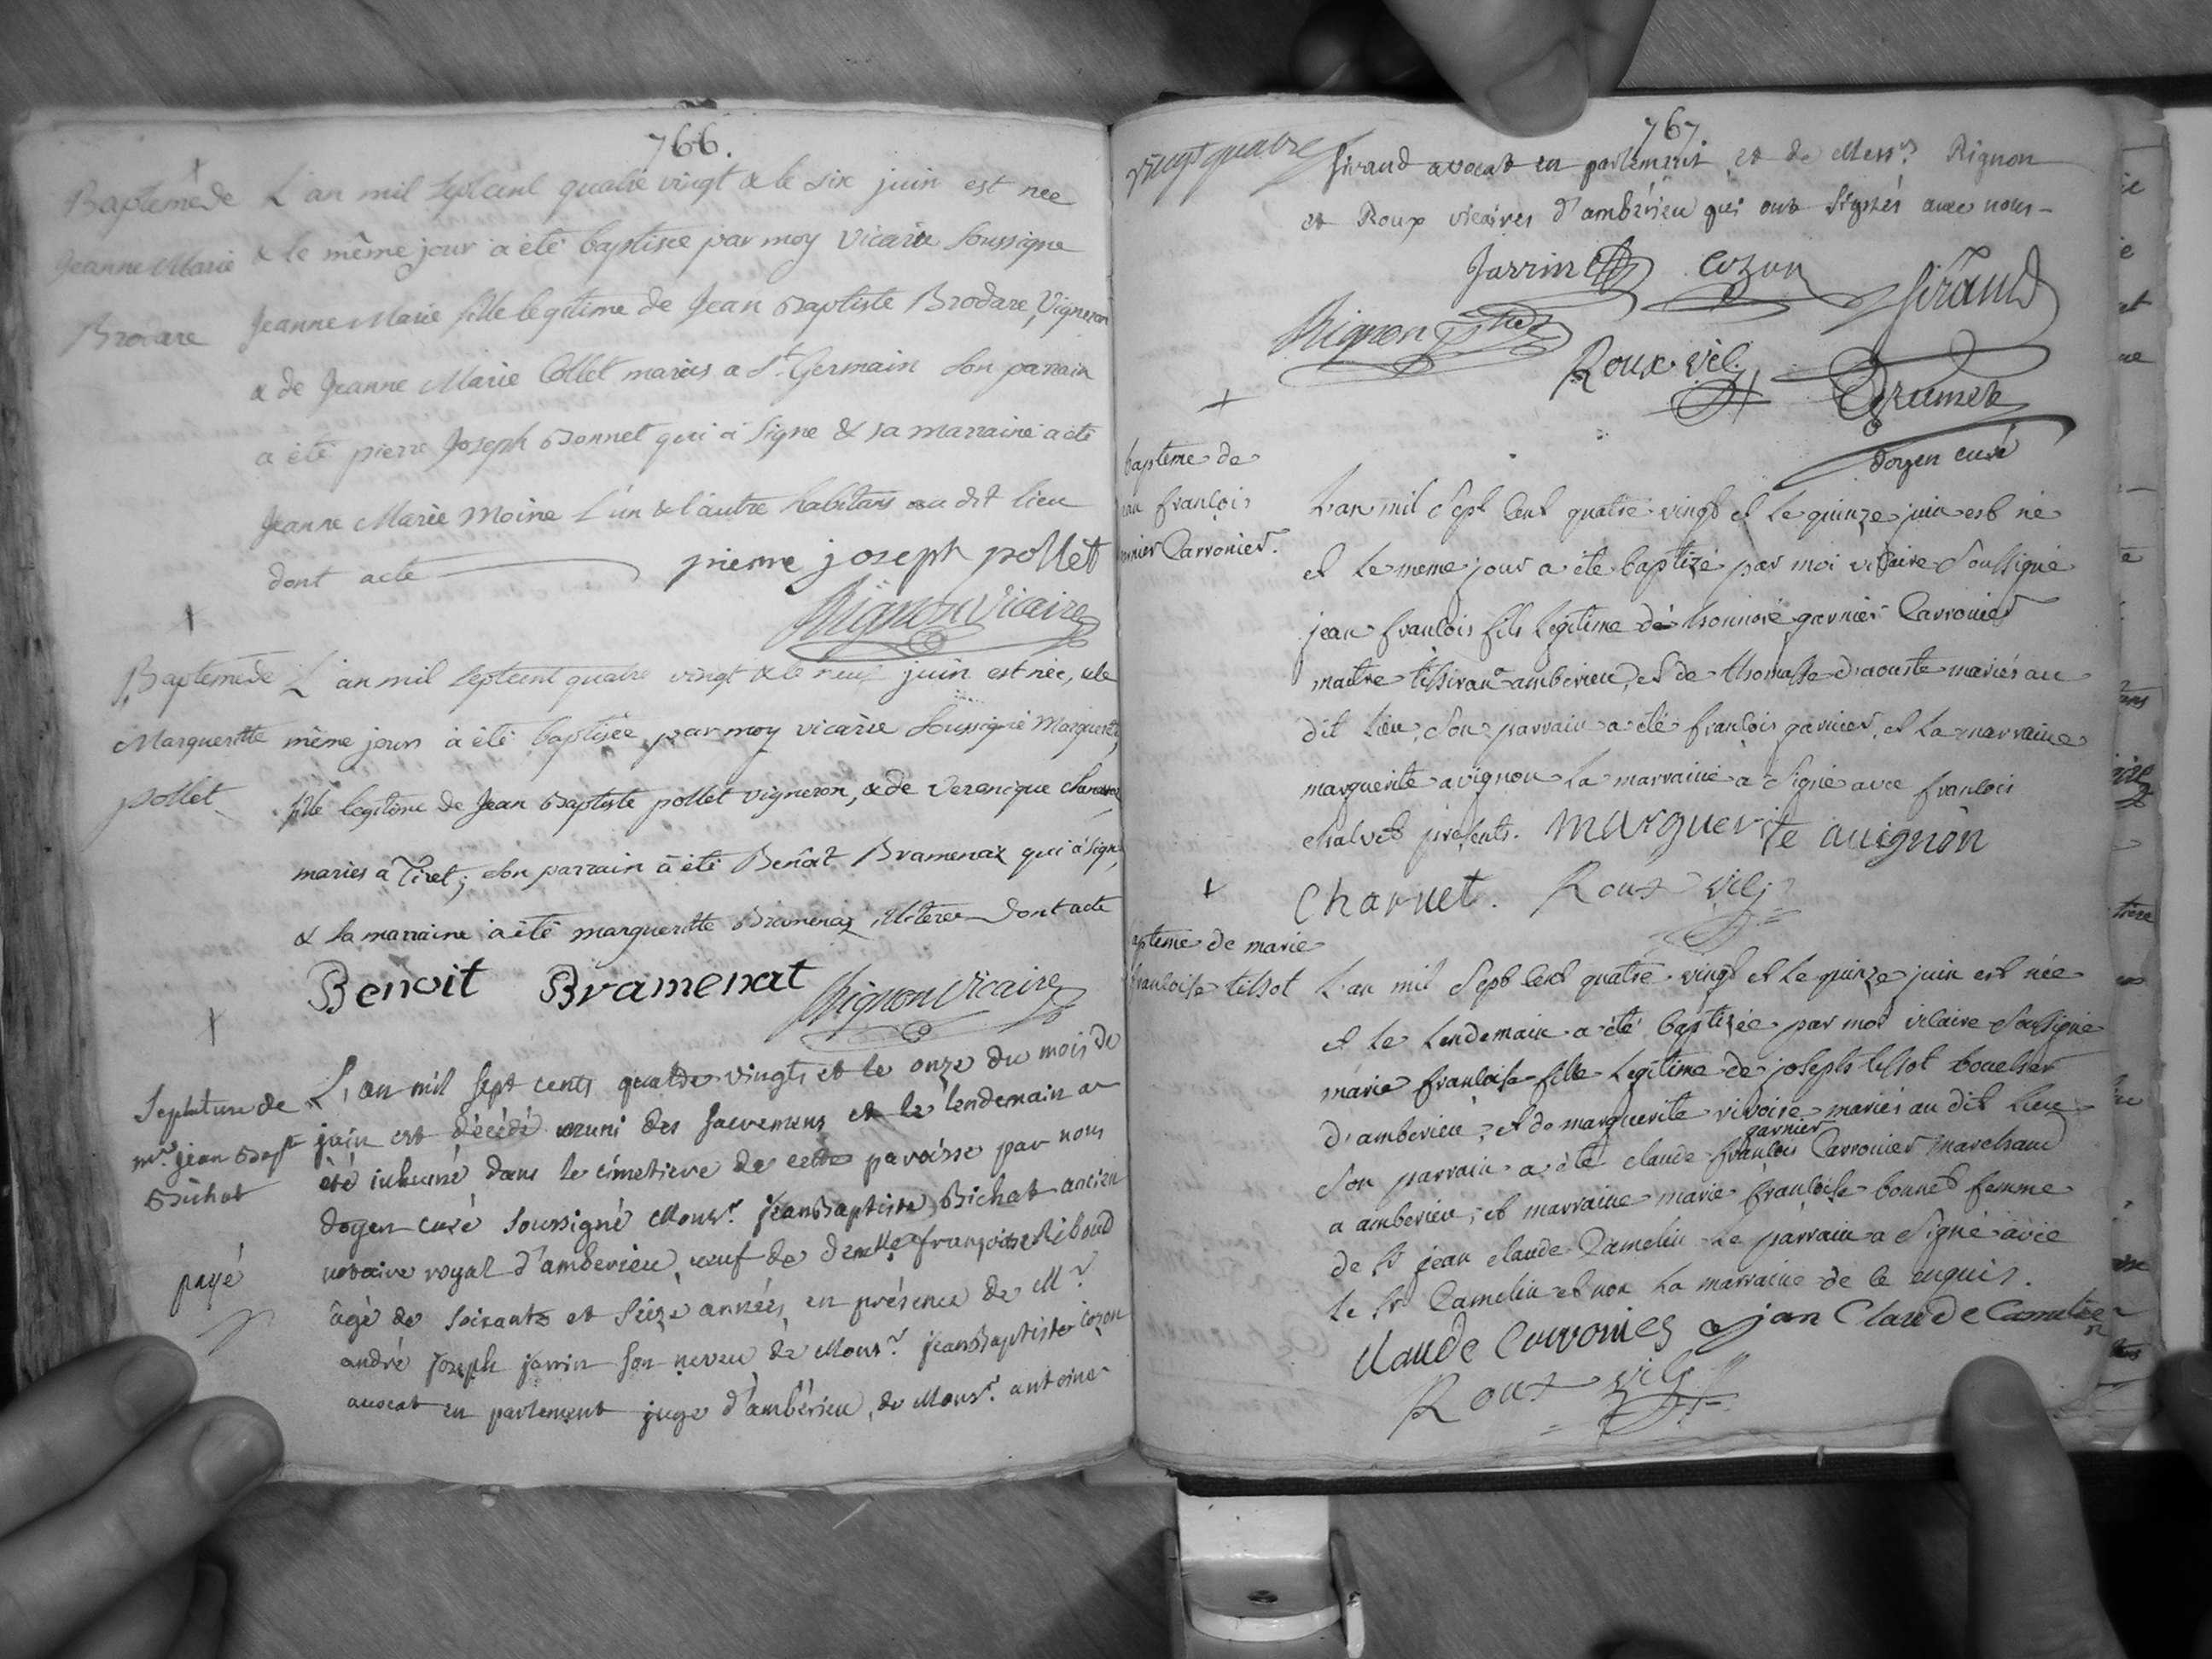 766.
Baptemede
Jeanne Marie
Brodare
L'an mil septcent quatre vingt & le six juin est nee
& le même jour a été baptisée par moy vicaire soussigne
Jeanne Marie fille legitime de Jean Baptiste Brodare, Vigneron
& de Jeanne Marie Collet mariés a St. Germain son parrain
a été pierre Joseph Bonnet qui a signe & sa marraine a été
Jeanne Marie Moine l'un & l'autre habitans au dit lieu
dont acte
pierre joseph pollet
Rignon vicaire
Baptemede
Margueritte
pollet
L'an mil septcent quatre vingt & le neuf juin est née, & le
même jour a été baptisée par moy vicaire soussigné Margueritte
fille legitime de Jean Baptiste pollet vigneron, & de Veronique
mariés a Tiret; son parrain a été Benoît Bramenaz qui a signé,
& sa marraine a été margueritte Bramenaz, dont acte
Benoit Bramenat
Rignon vicaire
Sepulture de
mr. jean Bapt
Bichat
payé
L'an mil sept cents quatre vingts et le onze du mois de
juin est décédé muni des sacremens et le lendemain a
été inhumé dans le cimetiere de cette paroisse par nous
doyen curé soussigné Monsr. jean Baptiste Bichat ancien
notaire royal d'amberieu, veuf de demlle françoise Riboud
âgé de soixante et seize années, en présence de Mr.
andré joseph jarrin son neveu de Monsr. jean Baptiste cozon
avocat en parlement juge d'ambérieu, de Monsr. antoine
767.
vingt quatre
Sirand avocat en parlement, et de Messrs. Rignon
et Roux vicaires d'ambérieu qui ont signés avec nous-
Jarrin cozon Sirand
Rignon
Roux vic.
Grumet
doyen curé
bapteme de
jean françois
garnier Carronier.
L'an mil sept cent quatre vingt et le quinze juin est né
et le meme jour a été baptizé par moi vicaire soussigné
jean françois fils legitime de honnoré garnier Carronier
maitre tisserand amberieu, et de thomasse d'aouste mariés au
dit lieu, son parrain a été françois garnier, et la marraine
marguerite avignon la marraine a signé avec françois
charvet présents. Marguerite auignôn
Charuet. Roux vic
bapteme de marie
françoise tissot
L'an mil sept cent quatre vingt et le quinze juin est née
et le lendemain a été baptizée par moi vicaire soussigné
marie françoise fille legitime de joseph tissot boucher
d'amberieu, et de marguerite vivoire mariés au dit lieu
son parrain a été claude françois garnier Carronier marchand
a amberieu, et marraine marie françoise bonnet femme
de sr jean claude Camelin le parrain a signé avec
le sr Camelin et non la marraine de ce enquis.
claude Carronier jan Claude Camelin
Roux vic